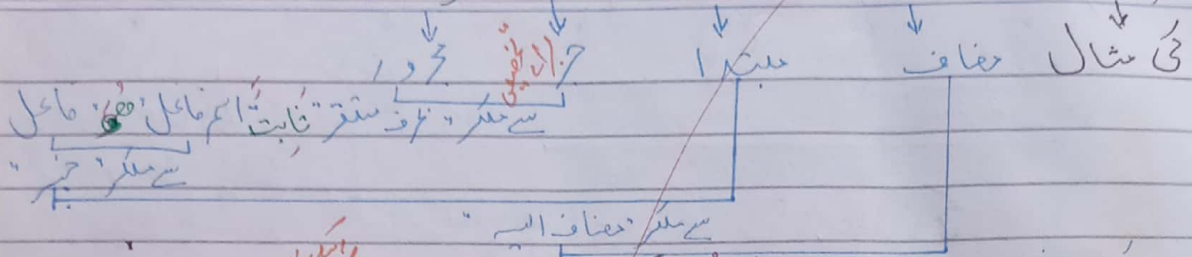 کی مثال مضاف مبتدا جر مجرور
سے ملکر ظرف مستقر ثابتٌ اسم فاعل فاعل
سے ملکر خبر
سے ملکر مضاف الیہ